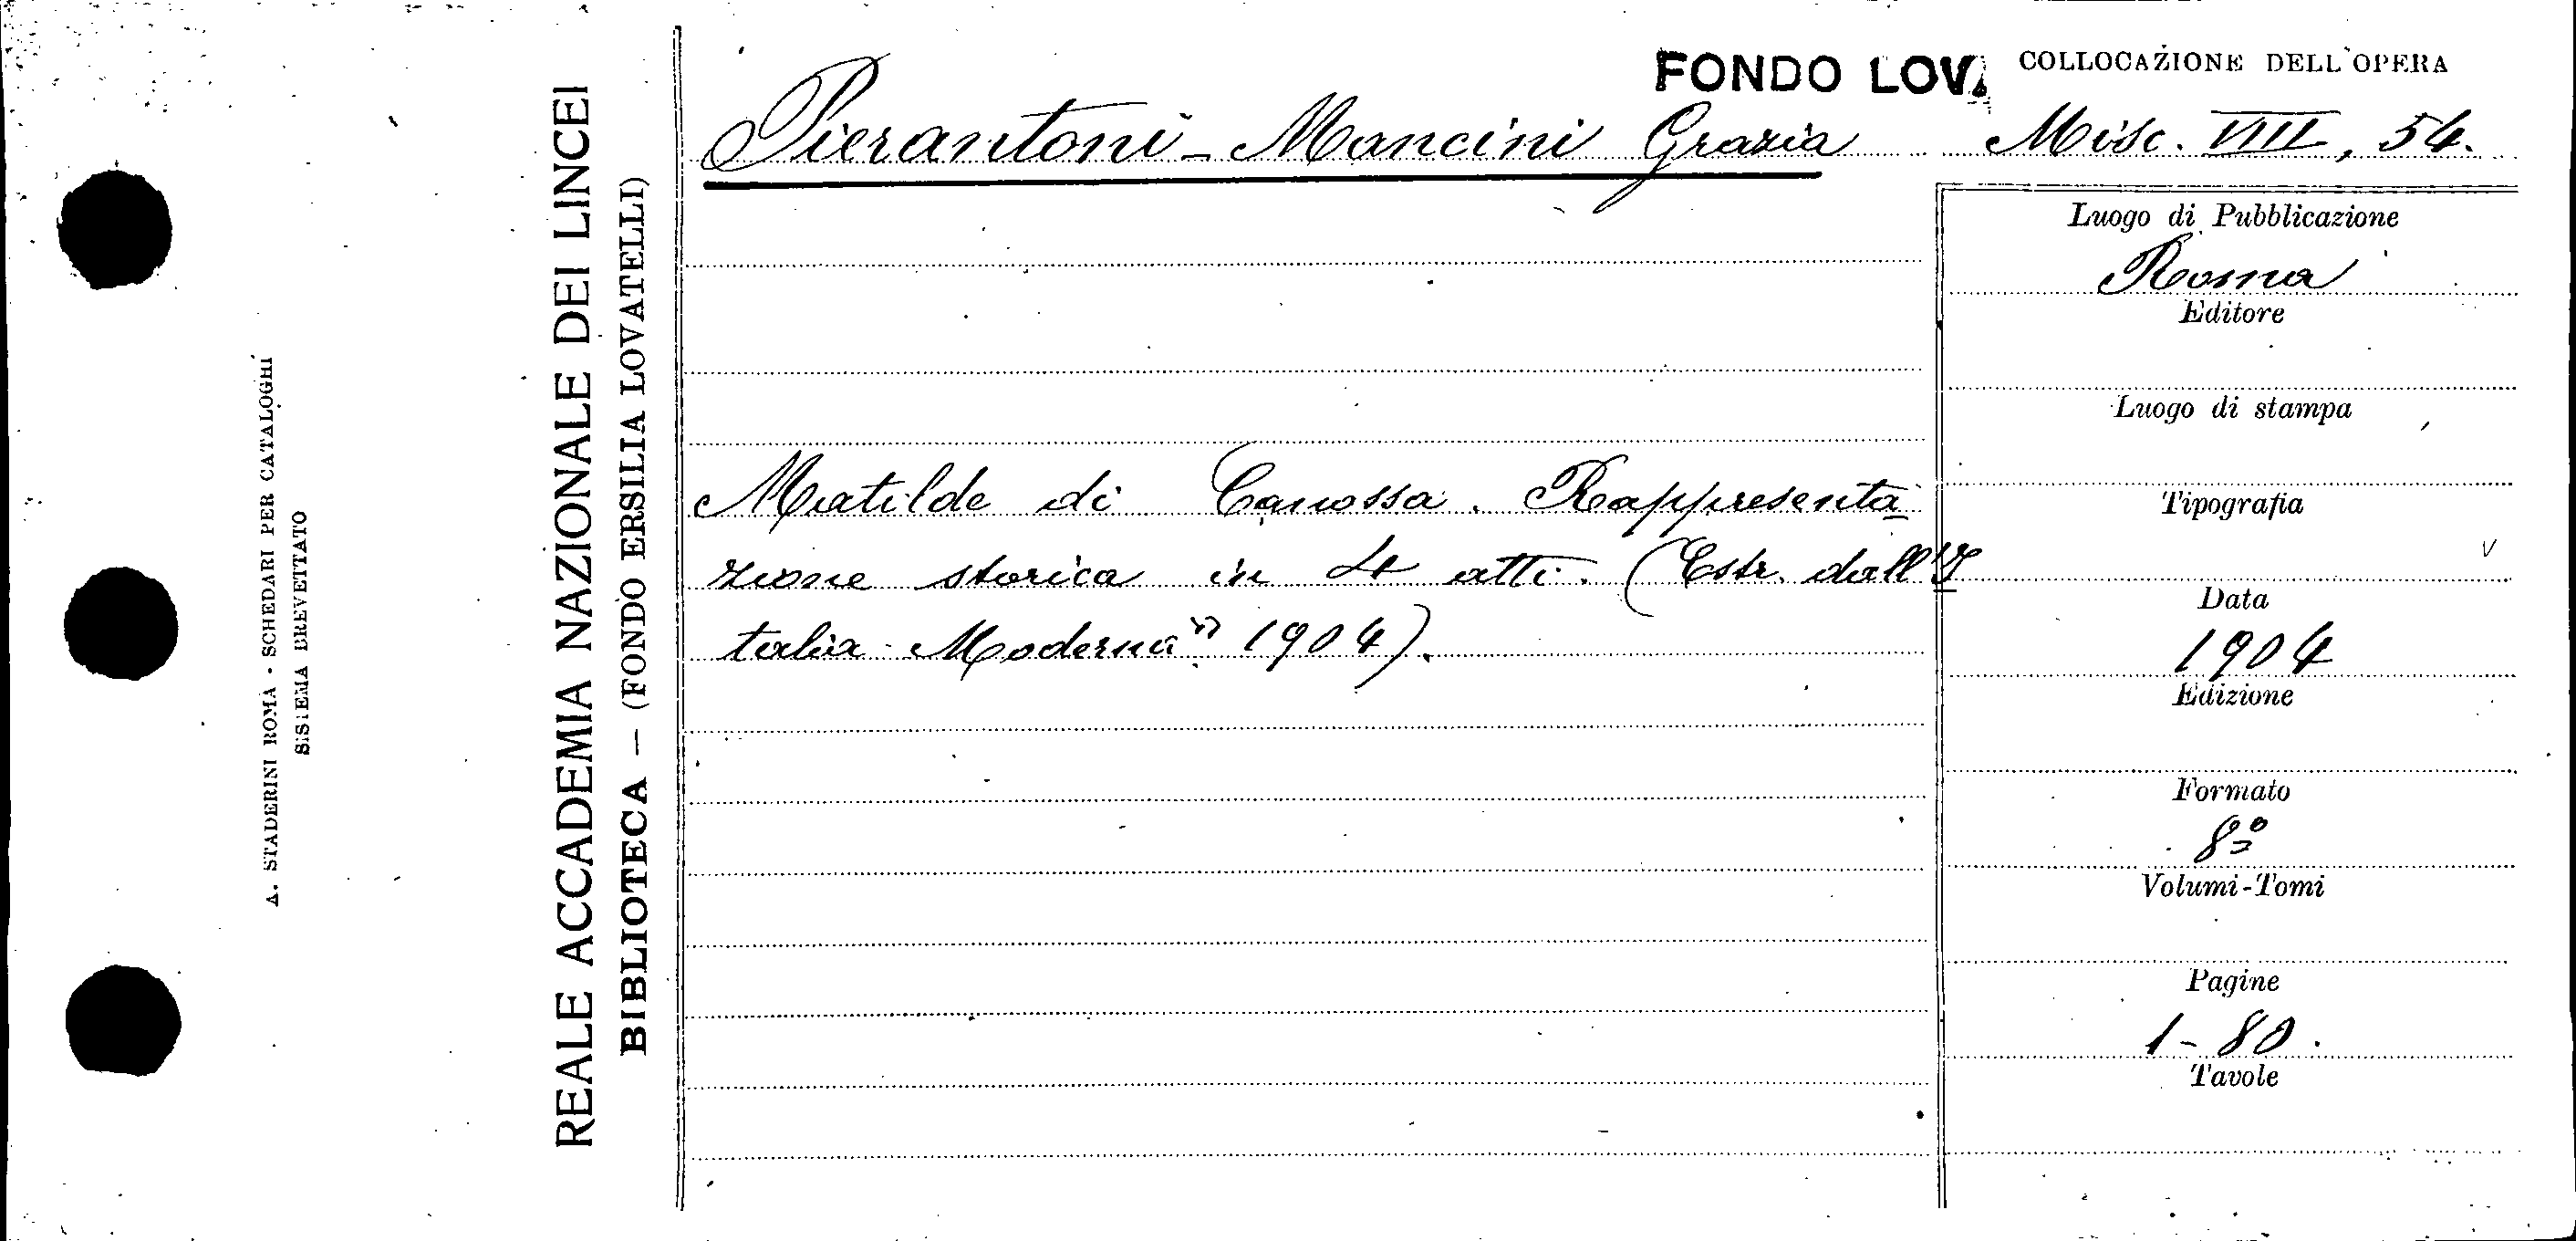 A. STADERINI ROMA - SCHEDARI PER CATALOGHI
SISTEMA BREVETTATO
REALE ACCADEMIA NAZIONALE DEI LINCEI
BIBLIOTECA — (FONDO ERSILIA LOVATELLI)
FONDO LOV.
COLLOCAZIONE DELL'OPERA
Pierantoni-Mancini Grazia
Misc. VIII, 54.
Matilde di Canossa. Rappresenta-
zione storica in 4 atti. (Estr. dall'"I-
talia Moderna" 1904).
Luogo di Pubblicazione
Roma
Editore
Luogo di stampa
Tipografia
Data
1904
Edizione
Formato
8º
Volumi-Tomi
Pagine
1-80.
Tavole